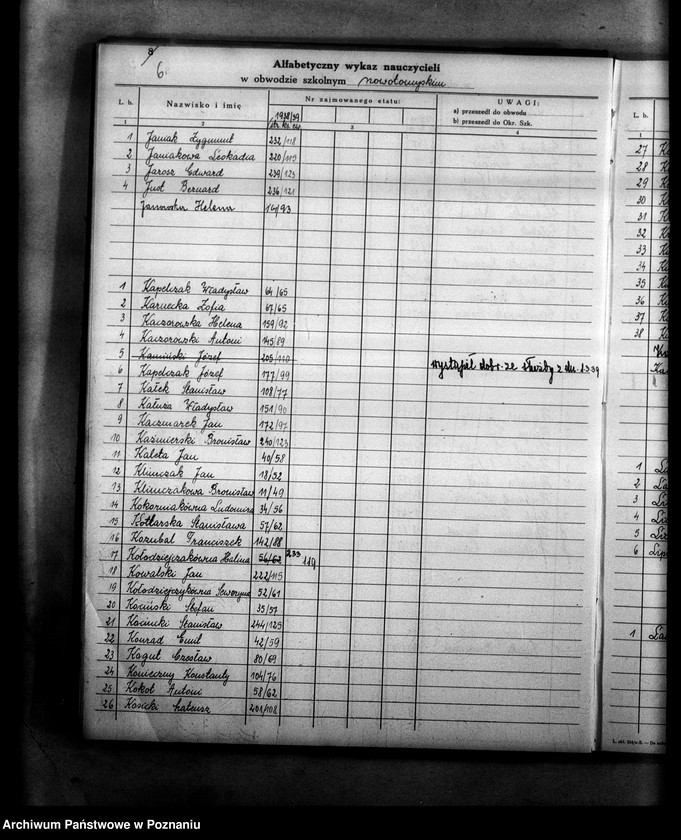 8
6
Alfabetyczny wykaz nauczycieli
w obwodzie szkolnym nowotomyskim
L. b. Nazwisko i imię Nr zajmowanego etatu: UWAGI:
1938/39 a) przeszedł do obwodu
b) przeszedł do Okr. Szk.
1 2 3 4
1 Janiak Zygmunt 232/118
2 Janiakowa Leokadia 220/113
3 Jarosz Edward 239/123
4 Just Bernard 236/121
Janowska Helena 14/93
1 Kapelczak Władysław 64/65
2 Karnecka Zofia 67/65
3 Kaczorowska Helena 159/92
4 Kaczorowski Antoni 145/89
5 Kamiński Józef 205/110
6 Kapelczak Józef 177/99 wystąpił dobr. ze służby z dn.
7 Kałek Stanisław 108/77
8 Kałuża Władysław 151/90
9 Kaczmarek Jan 172/97
10 Kaźmierski Bronisław 240/123
11 Kaleta Jan 40/58
12 Klimczak Jan 18/52
13 Klimczakowa Bronisława 11/49
14 Kokorniakówna Ludomira 34/56
15 Kotlarska Stanisława 57/62
16 Kozubal Franciszek 142/88
17 Kołodziejczakówna Halina 56/62 233 119
18 Kowalski Jan 222/115
19 Kołodziejczykówna Seweryna 52/61
20 Kociński Stefan 35/57
21 Kociucki Stanisław 244/125
22 Konrad Emil 42/59
23 Kogut Czesław 80/69
24 Konieczny Konstanty 104/76
25 Kokot Antoni 58/62
26 Kosicki 201/108
L. b.
1
27 K
28 K
29 K
30 K
31 K
32 K
33 K
34 K
35 K
36 K
37 K
38 K
1
2
3
4
5
6
1
Archiwum Państwowe w Poznaniu